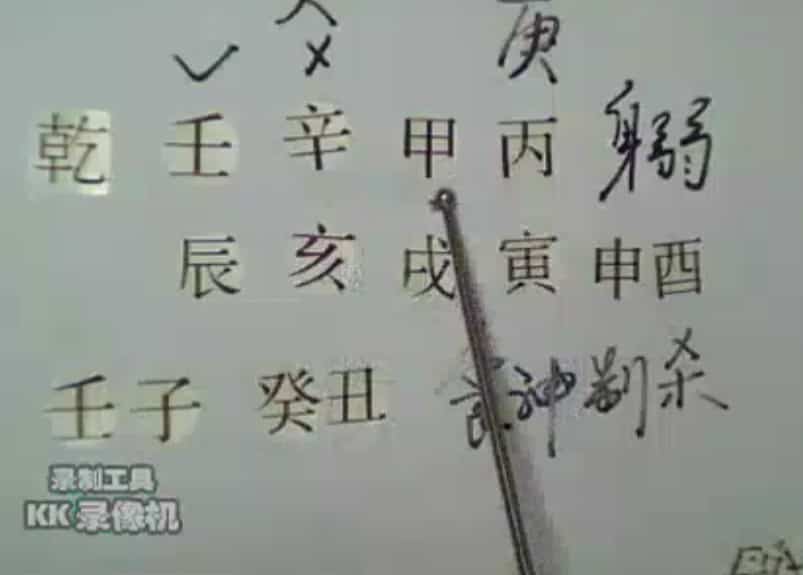 庚
乾 壬 辛 甲 丙 身弱
辰 亥 戌 寅 申酉
壬子 癸丑 食神制杀
录制工具
KK 录像机